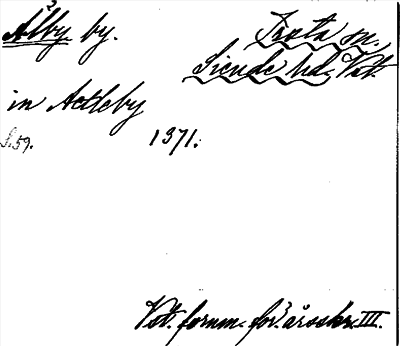 Ålby by.
Irsta sn.
Siende hd. Vstl.
in Aelleby
S. 59.
1371.
Vst. fornm. för:s årsskr. III.